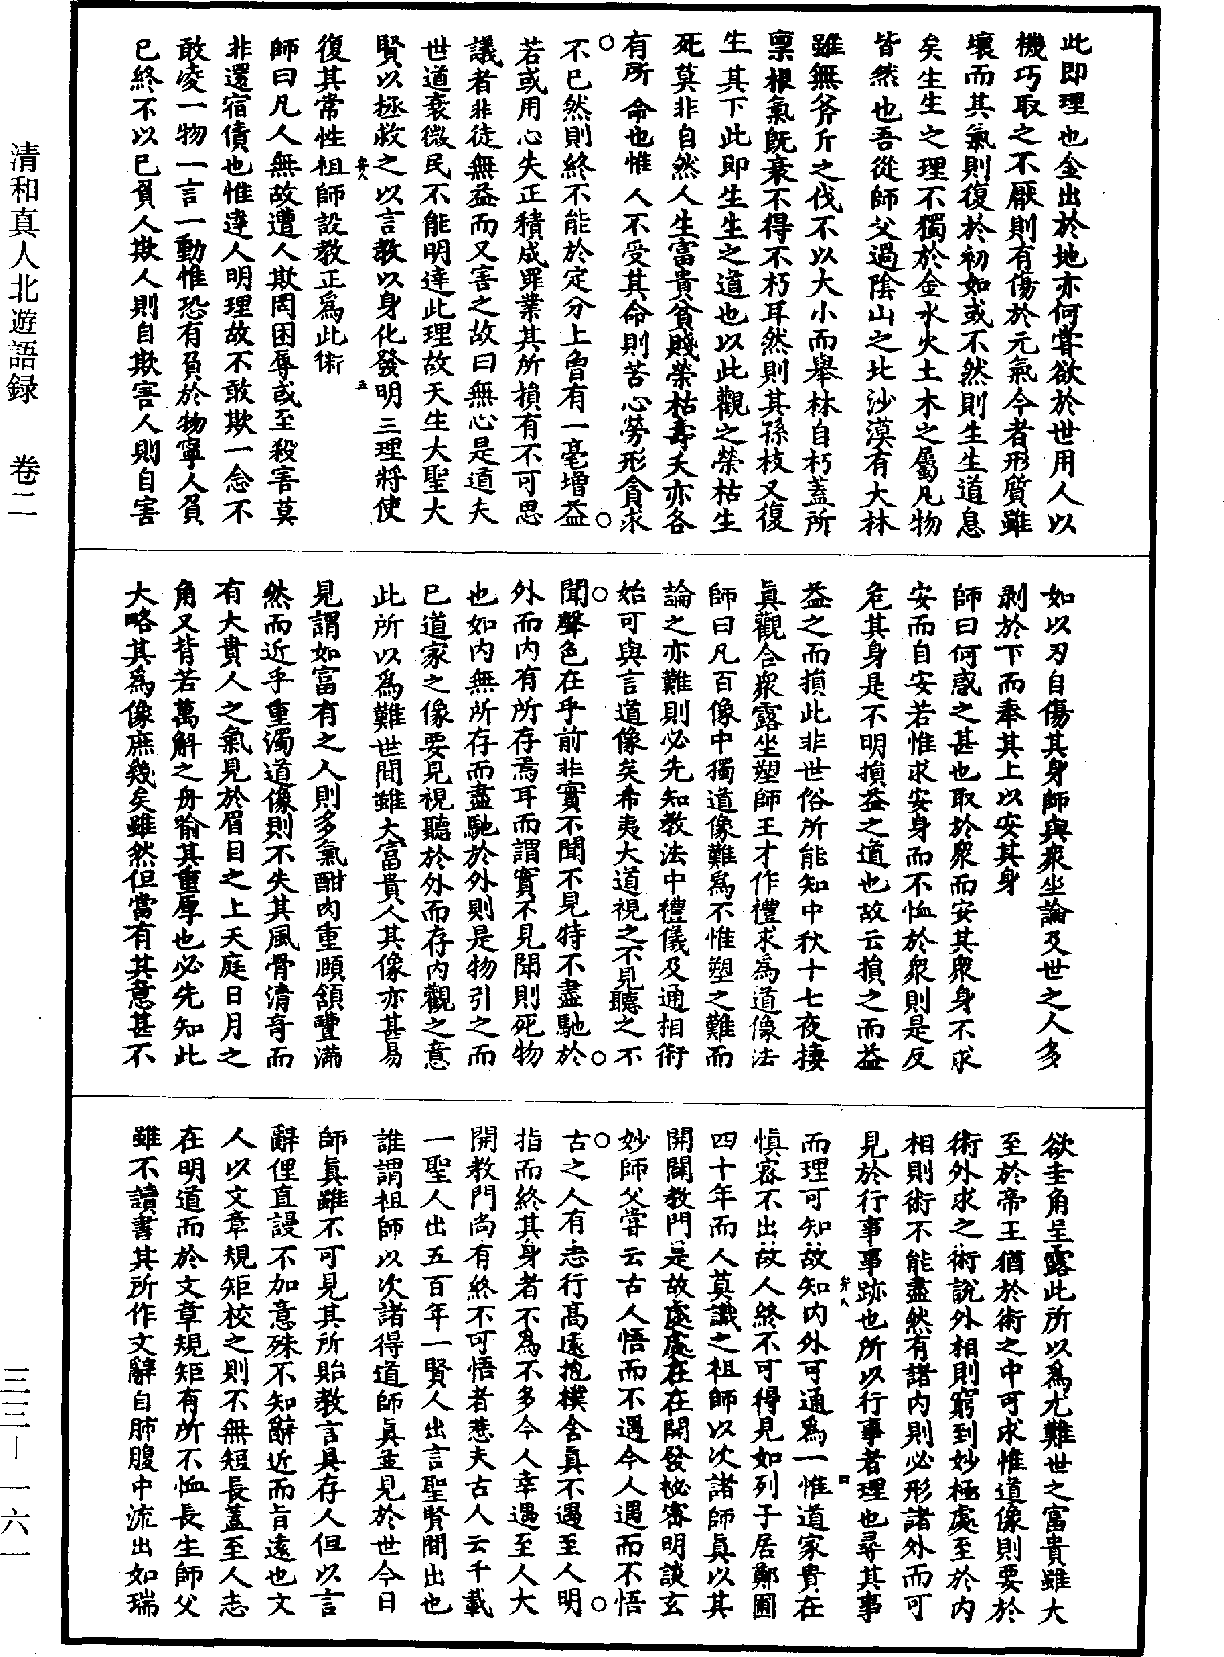 此即理也金出於地亦何嘗欲於世用人以
機巧取之不厭則有傷於元氣今者形質雖
壞而其氣則復於初如或不然則生生道息
矣生生之理不獨於金水火土木之屬凡物
皆然也吾從師父過陰山之北沙漠有大林
雖無斧斤之伐不以大小而舉林自朽蓋所
禀根氣旣衰不得不朽耳然則其孫枝又復
生其下此即生生之道也以此觀之榮枯生
死莫非自然人生富貴貧賤榮枯壽夭亦各
有所命也惟人不受其命則苦心勞形貪求
不已然則終不能於定分上曾有一毫增益
若或用心失正積成罪業其所損有不可思
議者非徒無益而又害之故曰無心是道夫
世道衰微民不能明達此理故天生大聖大
賢以拯救之以言教以身化發明三理將使
弁八 五
復其常性祖師設教正爲此術
師曰凡人無故遭人欺罔困辱或至殺害莫
非還宿債也惟達人明理故不敢欺一念不
敢凌一物一言一動惟恐有負於物寧人負
已終不以已負人欺人則自欺害人則自害
如以刃自傷其身師與衆坐論及世之人多
剥於下而奉其上以安其身
師曰何惑之甚也取於衆而安其衆身不求
安而自安若惟求安身而不恤於衆則是反
危其身是不明損益之道也故云損之而益
益之而損此非世俗所能知中秋十七夜捿
眞觀合衆露坐塑師王才作禮求爲道像法
師曰凡百像中獨道像難爲不惟塑之難而
論之亦難則必先知教法中禮儀及通相術
始可與言道像矣希夷大道視之不見聽之不
聞聲色在乎前非實不聞不見特不盡馳於
外而内有所存焉耳而謂實不見聞則死物
也如内無所存而盡馳於外則是物引之而
已道家之像要見視聽於外而存内觀之意
此所以爲難世間雖大富貴人其像亦甚易
見謂如富有之人則多氣酣肉重頤頷豐滿
然而近乎重濁道像則不失其風骨清奇而
有大貴人之氣見於眉目之上天庭日月之
角又背若萬斛之舟喻其重厚也必先知此
大略其爲像庶幾矣雖然但當有其意甚不
欲圭角呈露此所以爲尤難世之富貴雖大
至於帝王猶於術之中可求惟道像則要於
術外求之術說外相則窮到妙極處至於内
相則術不能盡然有諸内則必形諸外而可
見於行事事跡也所以行事者理也尋其事
弁八 四
而理可知故知内外可通爲一惟道家貴在
愼密不出故人終不可得見如列子居鄭圃
四十年而人莫識之祖師以次諸師眞以其
開闡教門是故處處在在開發秘密明談玄
妙師父嘗云古人悟而不遇今人遇而不悟
古之人有志行高遠抱樸含真不遇至人明
指而終其身者不為不多今人幸遇至人大
開教門尚有終不可悟者惹夫古人云千載
一聖人出五百年一賢人出言聖賢間出也
誰謂祖師以次諸得道師眞並見於世今日
師眞雖不可見其所貽教言具存人但以言
辭俚直謾不加意殊不知辭近而旨遠也文
人以文章規矩校之則不無短長蓋至人志
在明道而於文章規矩有所不恤長生師父
雖不讀書其所作文辭自肺腹中流出如瑞
清和真人北遊語録 卷二
三三—一六一